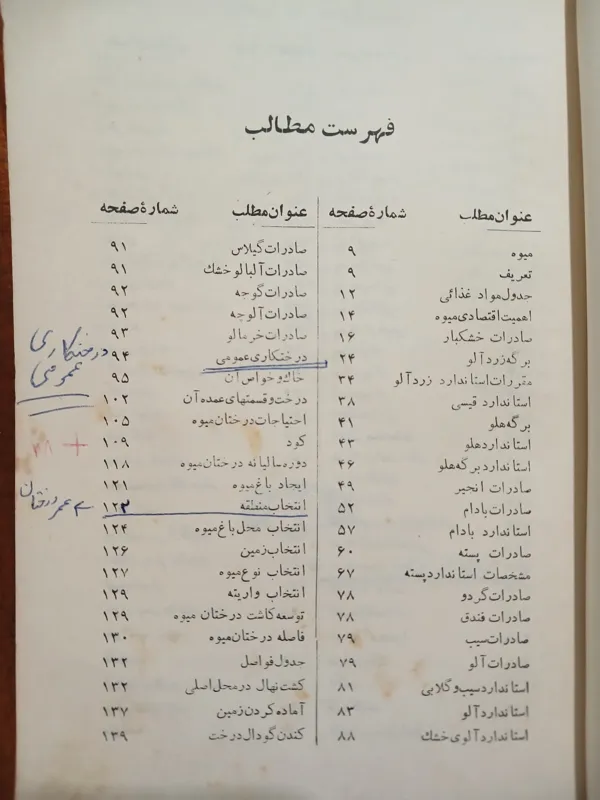 فهرست مطالب
عنوان مطلب شمارهٔ صفحه
میوه ۹
تعریف ۹
جدول مواد غذائی ۱۲
اهمیت اقتصادی میوه ۱۴
صادرات خشکبار ۱۶
برگه زردآلو ۲۴
مقررات استاندارد زردآلو ۳۴
استاندارد قیسی ۳۸
برگه هلو ۴۱
استاندارد هلو ۴۳
استاندارد برگه هلو ۴۶
صادرات انجیر ۴۹
صادرات بادام ۵۲
استاندارد بادام ۵۷
صادرات پسته ۶۰
مشخصات استاندارد پسته ۶۷
صادرات گردو ۷۸
صادرات فندق ۷۸
صادرات سیب ۷۹
صادرات آلو ۷۹
استاندارد سیب و گلابی ۸۱
استاندارد آلو ۸۳
استاندارد آلوی خشک ۸۸
عنوان مطلب شمارهٔ صفحه
صادرات گیلاس ۹۱
صادرات آلبالو خشک ۹۱
صادرات گوجه ۹۲
صادرات آلوچه ۹۲
صادرات خرمالو ۹۳
درختکاری عمومی ۹۴
خاک و خواص آن ۹۵
درخت و قسمتهای عمده آن ۱۰۲
احتیاجات درختان میوه ۱۰۵
کود ۱۰۹
دوره سالیانه درختان میوه ۱۱۸
ایجاد باغ میوه ۱۲۱
انتخاب منطقه ۱۲۳
انتخاب محل باغ میوه ۱۲۴
انتخاب زمین ۱۲۶
انتخاب نوع میوه ۱۲۷
انتخاب واریته ۱۲۹
توسعه کاشت درختان میوه ۱۲۹
فاصله درختان میوه ۱۳۰
جدول فواصل ۱۳۲
کشت نهال در محل اصلی ۱۳۲
آماده کردن زمین ۱۳۷
کندن گودال درخت ۱۳۹
درختکاری
عمومی
عمر درختان